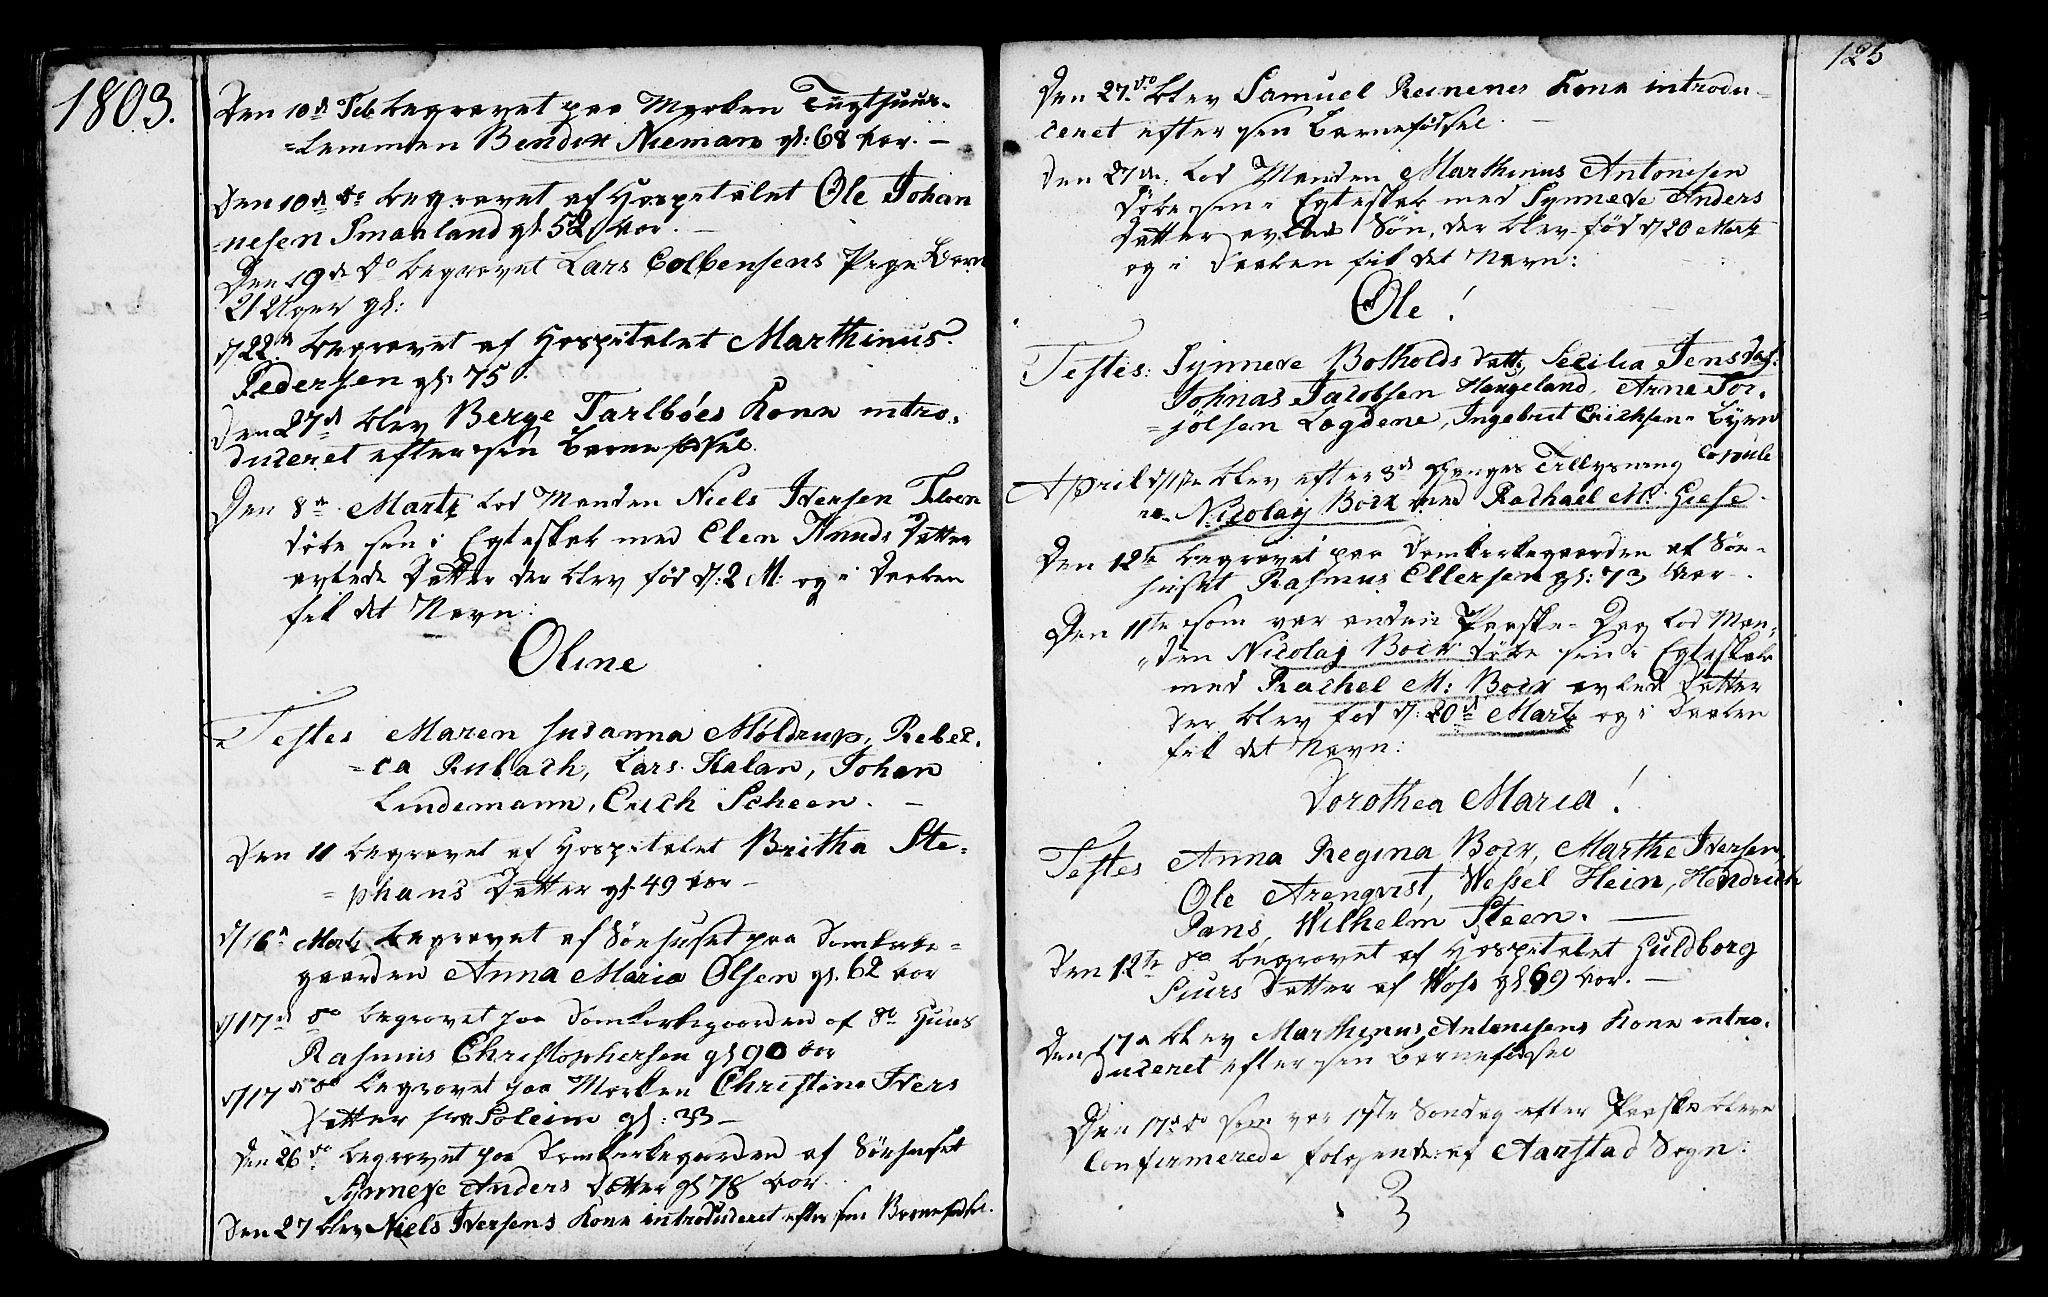 1803.
Den 10d Feb begravet paa Marken Tugthuus-
=Lemmen Bendix Nieman gl: 68 Aar. —
Den 10d do begravet af Hospitalet Ole Johan
=nesen Smaaland gl. 52 Aar. —
Den 19de do begravet Lars Colbensens Pige Barn
21 Uger gl:
d/ 22d begravet af Hospitalet Marthinus
Pedersen gl. 75
Den 27d blev Berge Tarlböes Kone intro-
duceret efter sin Barnefødsel
Den 8de Martz lod Manden Niels Iversen
döbe sin i Egteskab med Elen Knuds Datter
avlede Datter der blev fød d: 2 M: og i Daaben
fik det Navn:
Oline
Testes Maren Susanna Möldrup, Rebec-
=ca Rubach, Lars Kalan, Johan
Lindemann, Erich Scheen. —
Den 11 begravet af Hospitalet Britha Ste-
=phans Datter gl. 49 Aar —
d/ 16de Martz begravet af Söehuset paa Domkirke-
gaarden Anna Maria Olsen gl. 62 Aar
d/ 17d do begravet paa Domkirkegaarden af do Huus
Rasmus Christophersen gl 90 Aar
d/ 17d do begravet paa Marken Christine Ivers
Datter fra Soleim gl: 33 —
Den 26 do begravet paa Domkirkegaarden af Söehuset
Synneve Anders Datter gl 78 Aar
Den 27 blev Niels Iversens Kone introduceret efter sin Barnefødsel.
125
Den 27. do blev Samuel Reinenes Kone introdu-
ceret efter sin Barnefödsel. —
Den 27de lod Manden Marthinus Antonisen
döbe sin i Egteskab med Synneve Anders
Datter avlede Sön, der blev fød d/ 20 Martz
og i Daaben fik det Navn:
Ole!
Testes: Synneve Botholds Datt. Secilia Jens Dat:
Johnas Jacobsen Haugeland, Arne Tor-
=jölsen Lægdene, Ingebret Erichsen
April d/ 1ste blev efter 3de Ganges Tillysning Copule
re Nicolay Böck med Rachael M. Giese
Den 12te begravet paa Domkirkegaarden af Söe-
huset Rasmus Ellersen gl: 73 Aar —
Den 11te som var anden Paaske-Dag lod Man-
den Nicolay Böck döbe sin i Egteskab
med Rachel M: Böck avlede Datter
der blev fød d: 20d Martz og i Daaben
fik det Navn:
Dorothea Maria!
Testes Anna Regina Böck, Marthe Iversen,
Ole Arenqvist, Wessel Hein, Hendrich
Pans, Wilhelm Steen. —
Den 12te do begravet af Hospitalet Guldborg
Siurs Datter af Wos gl 69 Aar. —
Den 17de blev Marthinus Antonisens Kone intro-
duceret efter sin Barnefødsel
Den 17de do som var 1ste Söndag efter Paaske bleve
Confirmerede følgende af Aarstad Sogn: